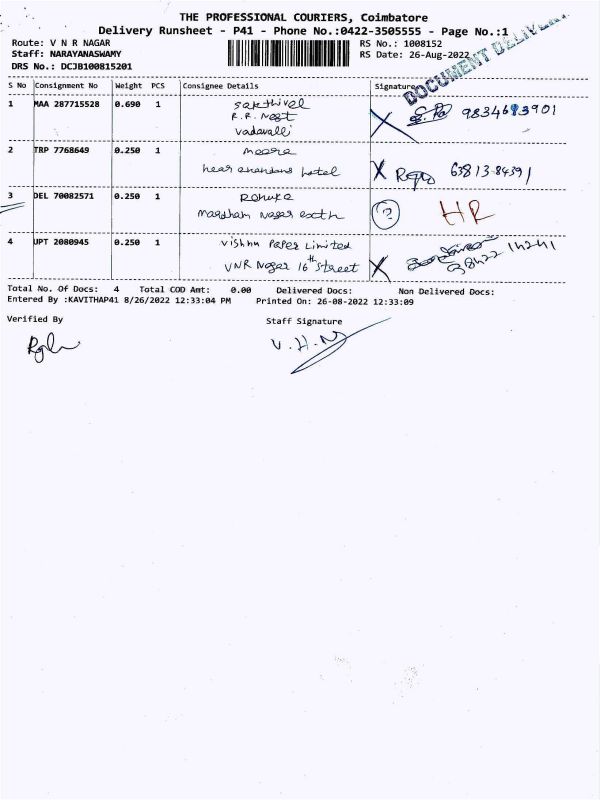 THE PROFESSIONAL COURIERS, Coimbatore
Delivery Runsheet - P41 - Phone No.:0422-3505555 - Page No.:1
Route: V N R NAGAR
RS No.: 1008152
Staff: NARAYANASWAMY
RS Date: 26-Aug-2022
DRS No.: DCJB100815201
DOCUMENT DELIVERY
S No Consignment No Weight PCS Consignee Details Signature
1 MAA 287715528 0.690 1 Sakthivel
R.R. Nest
Vadavalli
9834683901
2 TRP 7768649 0.250 1 meera
near anandas hotel
63813-84391
3 DEL 70082571 0.250 1 Renuka
Nagar extn
? HR
4 UPT 2080945 0.250 1 Vishnu Paper Limited
VNR Nagar 16th street
Total No. Of Docs: 4 Total COD Amt: 0.00 Delivered Docs: Non Delivered Docs:
Entered By :KAVITHAP41 8/26/2022 12:33:04 PM Printed On: 26-08-2022 12:33:09
Verified By
Staff Signature
V.H.N